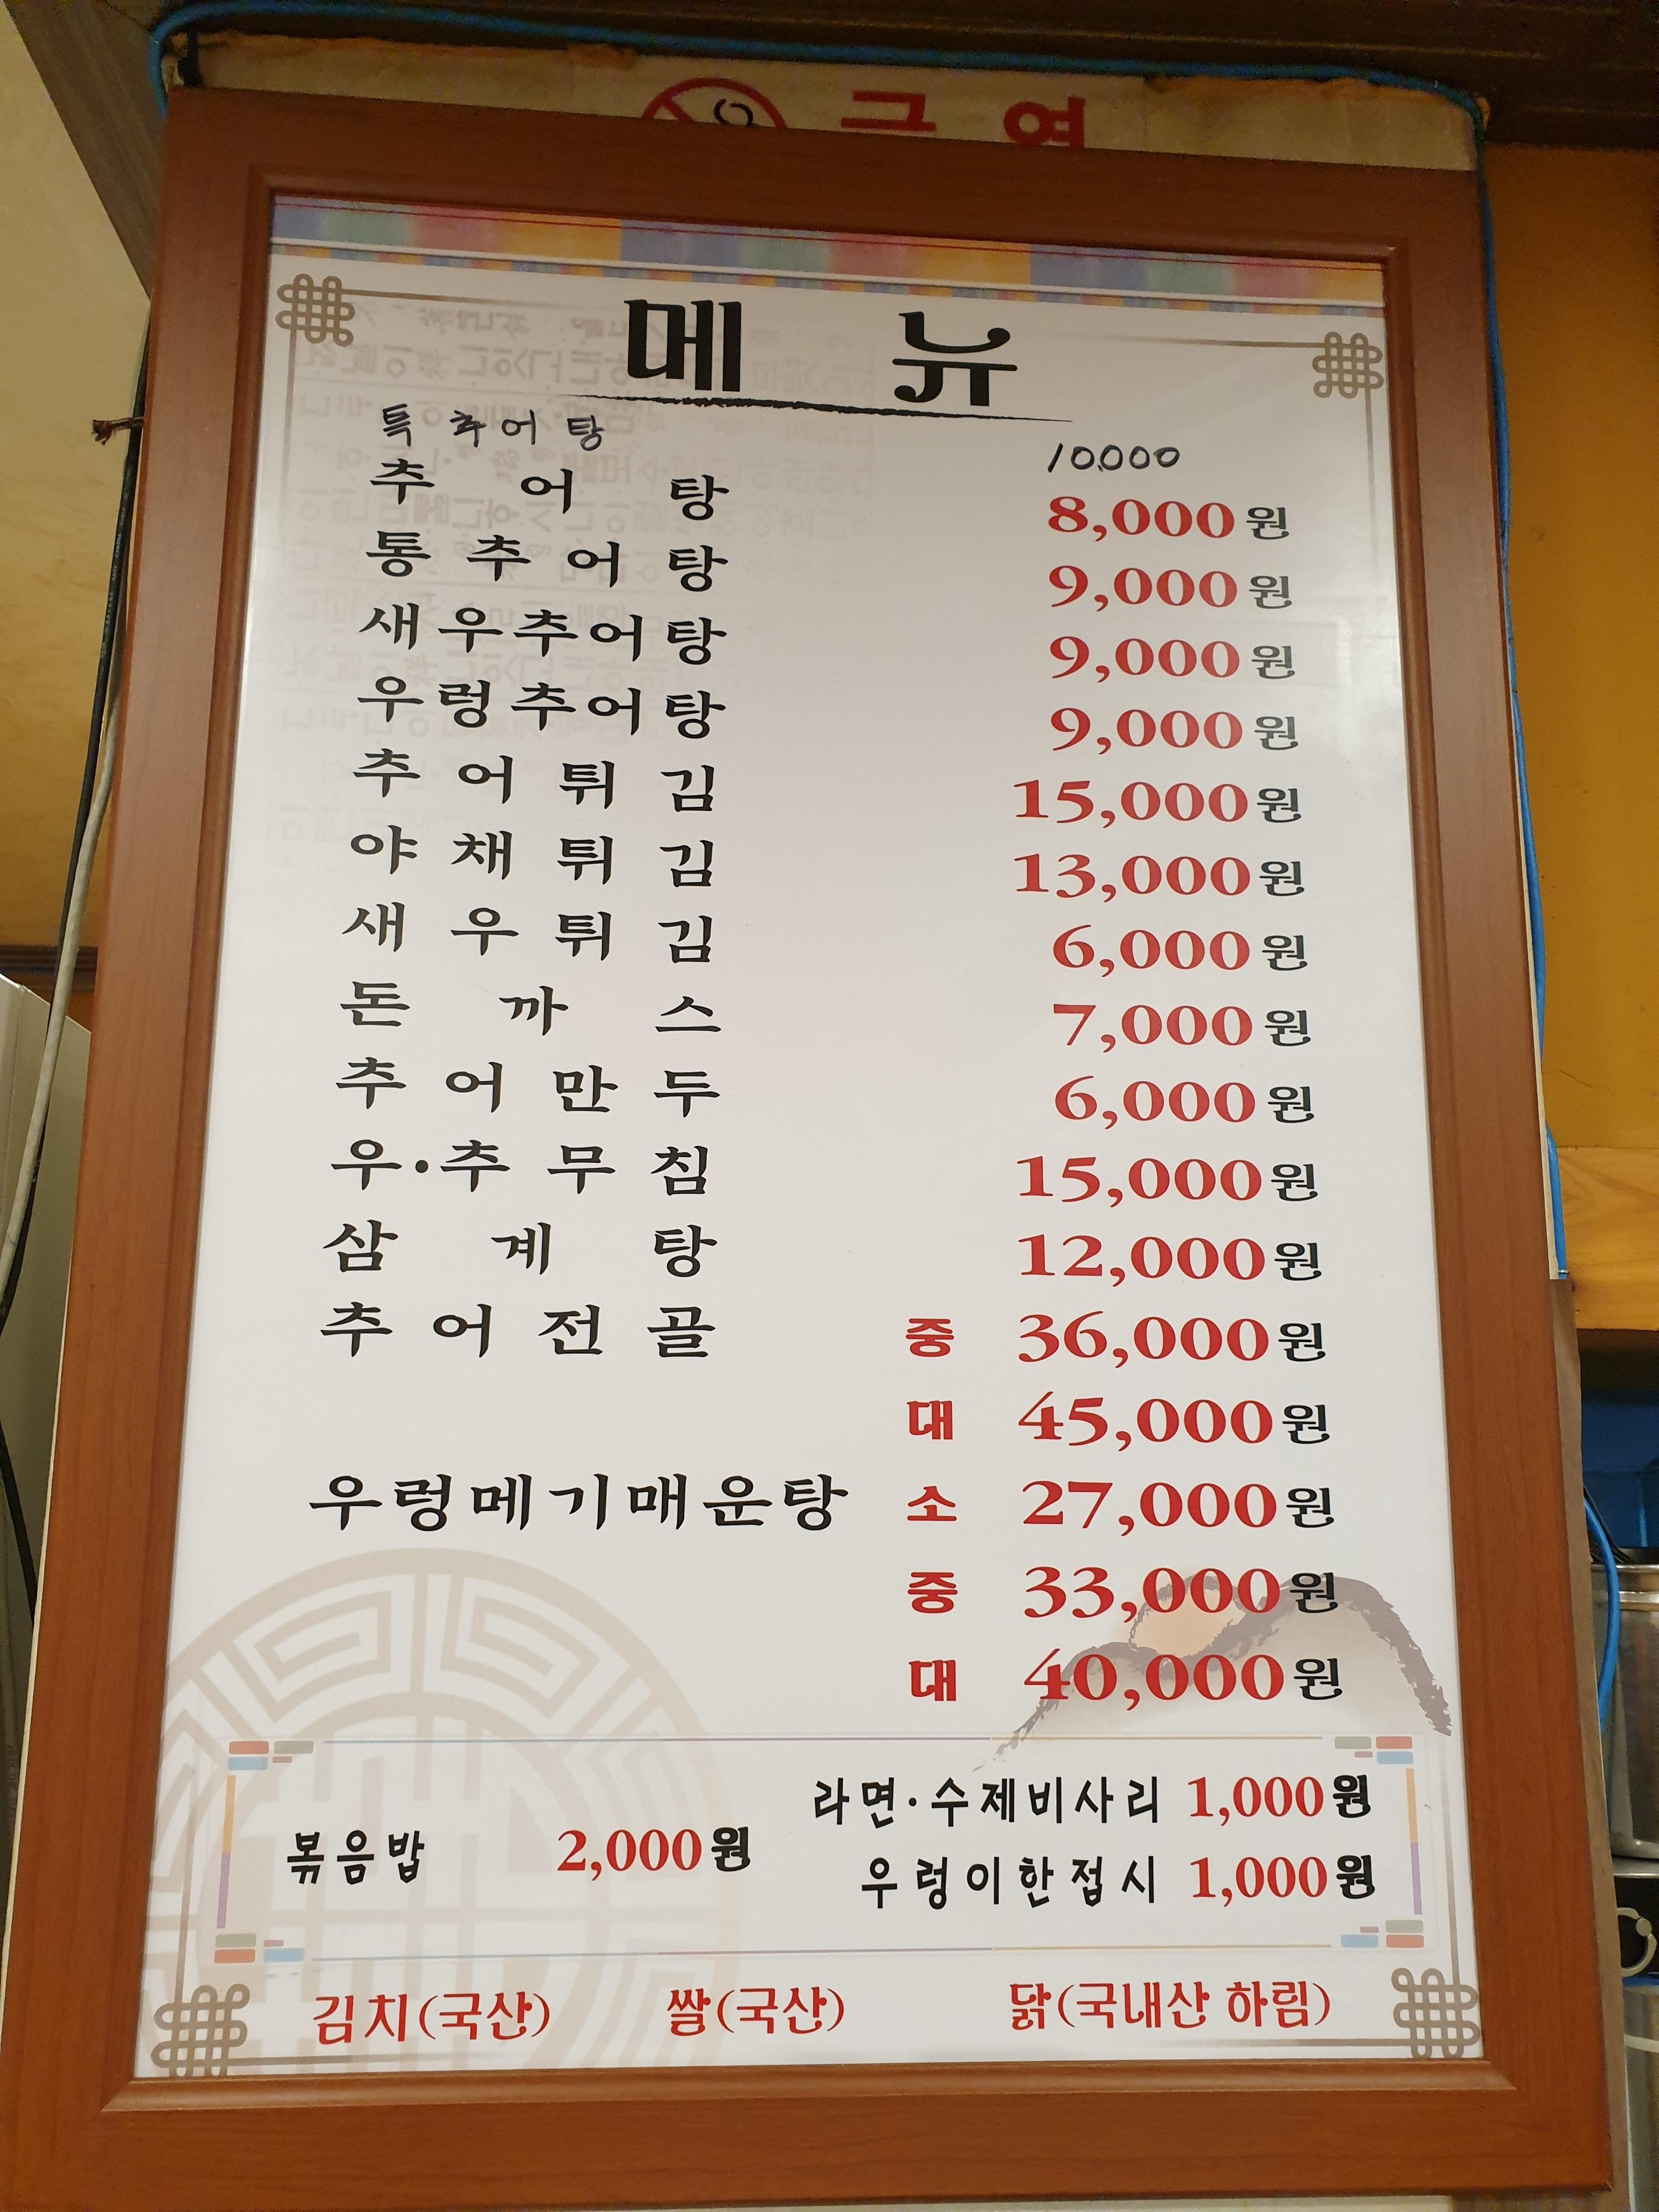 금 연
메 뉴
특 추어 탕 10,000
추 어 탕 8,000원
통 추 어 탕 9,000원
새우추어탕 9,000원
우렁추어탕 9,000원
추 어 튀 김 15,000원
야 채 튀 김 13,000원
새 우 튀 김 6,000원
돈 까 스 7,000원
추 어 만 두 6,000원
우·추 무 침 15,000원
삼 계 탕 12,000원
추 어 전 골 중 36,000원
대 45,000원
우렁메기매운탕 소 27,000원
중 33,000원
대 40,000원
볶음밥 2,000원
라면·수제비사리 1,000원
우렁이한접시 1,000원
김치(국산) 쌀(국산) 닭(국내산 하림)